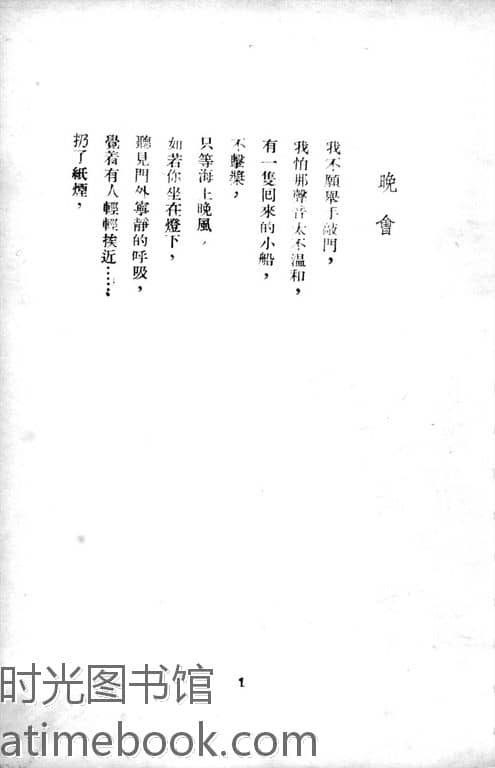 晚會
我不願舉手敲門，
我怕那聲音太不温和，
有一隻囘來的小船，
不擊槳，
只等海上晚風，
如若你坐在燈下，
聽見門外寧靜的呼吸，
覺着有人輕輕挨近……
扔了紙煙，
1
时光图书馆
atimebook.com